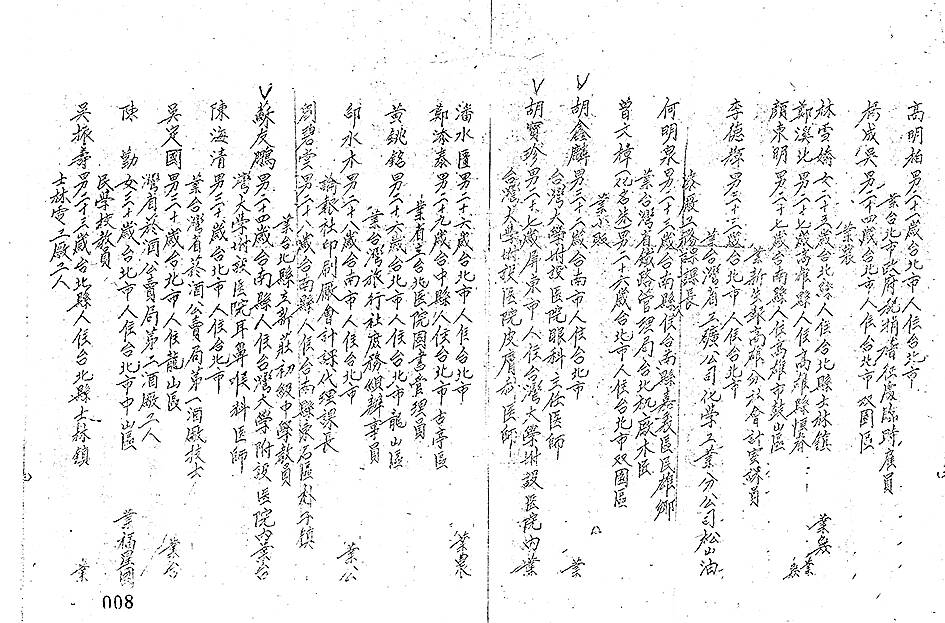 高明柏男二十一歲台北市人住台北市
業台北市政府稅捐稽征處臨時雇員
楊成吳男二十四歲台北市人住台北市双園區
業農
林雪嬌女二十三歲台北縣人住台北縣士林鎮
業無
鄭溪北男二十七歲高雄縣人住高雄縣
業
顏東明男二十七歲台南市人住高雄市鼓山區
無
業新生報高雄分社會計室課員
李德輝男二十三歲台北市人住台北市
業台灣省工礦公司化學工業分公司松山油
漆廠工務課課長
何明泉男二十八歲台南縣人住台南縣嘉義區民雄鄉
業台灣省鐵路管理局台北機廠木匠
曾文樟男二十六歲台北市人住台北市双園區
業小販
胡鑫麟男三十二歲台南市人住台北市
業
台灣大學附設医院眼科主任医師
胡寶珍男二十七歲屏東市人住台灣大學附設医院內業
台灣大學附設医院皮膚科医師
潘水匯男二十六歲台北市人住台北市
業農
鄭添泰男二十九歲台中縣人住台北市古亭區
業省立台北医院圖書管理員
黃銚銘男二十六歲台北市人住台北市龍山區
業台灣旅行社庶務組幹事員
邱水木男二十八歲台南市人住台北市
業公
論報社印刷廠會計課代理課長
劉碧堂男二十八歲台南縣人住台南縣東石區朴子鎮
業台北縣立新莊初級中學教員
蘇友鵬男二十四歲台南縣人住台灣大學附設医院內業台
灣大學附設医院耳鼻喉科医師
陳海清男三十歲台北市人住台北市
業台灣省菸酒公賣局第一酒廠技士
吳定國男三十歲台北市人住龍山區
業台
灣省菸酒公賣局第二酒廠工人
陳 勤女三十歲台北市人住台北市中山區
業福星國
民學校教員
吳振壽男二十三歲台北縣人住台北縣士林鎮
業
士林電工廠工人
008